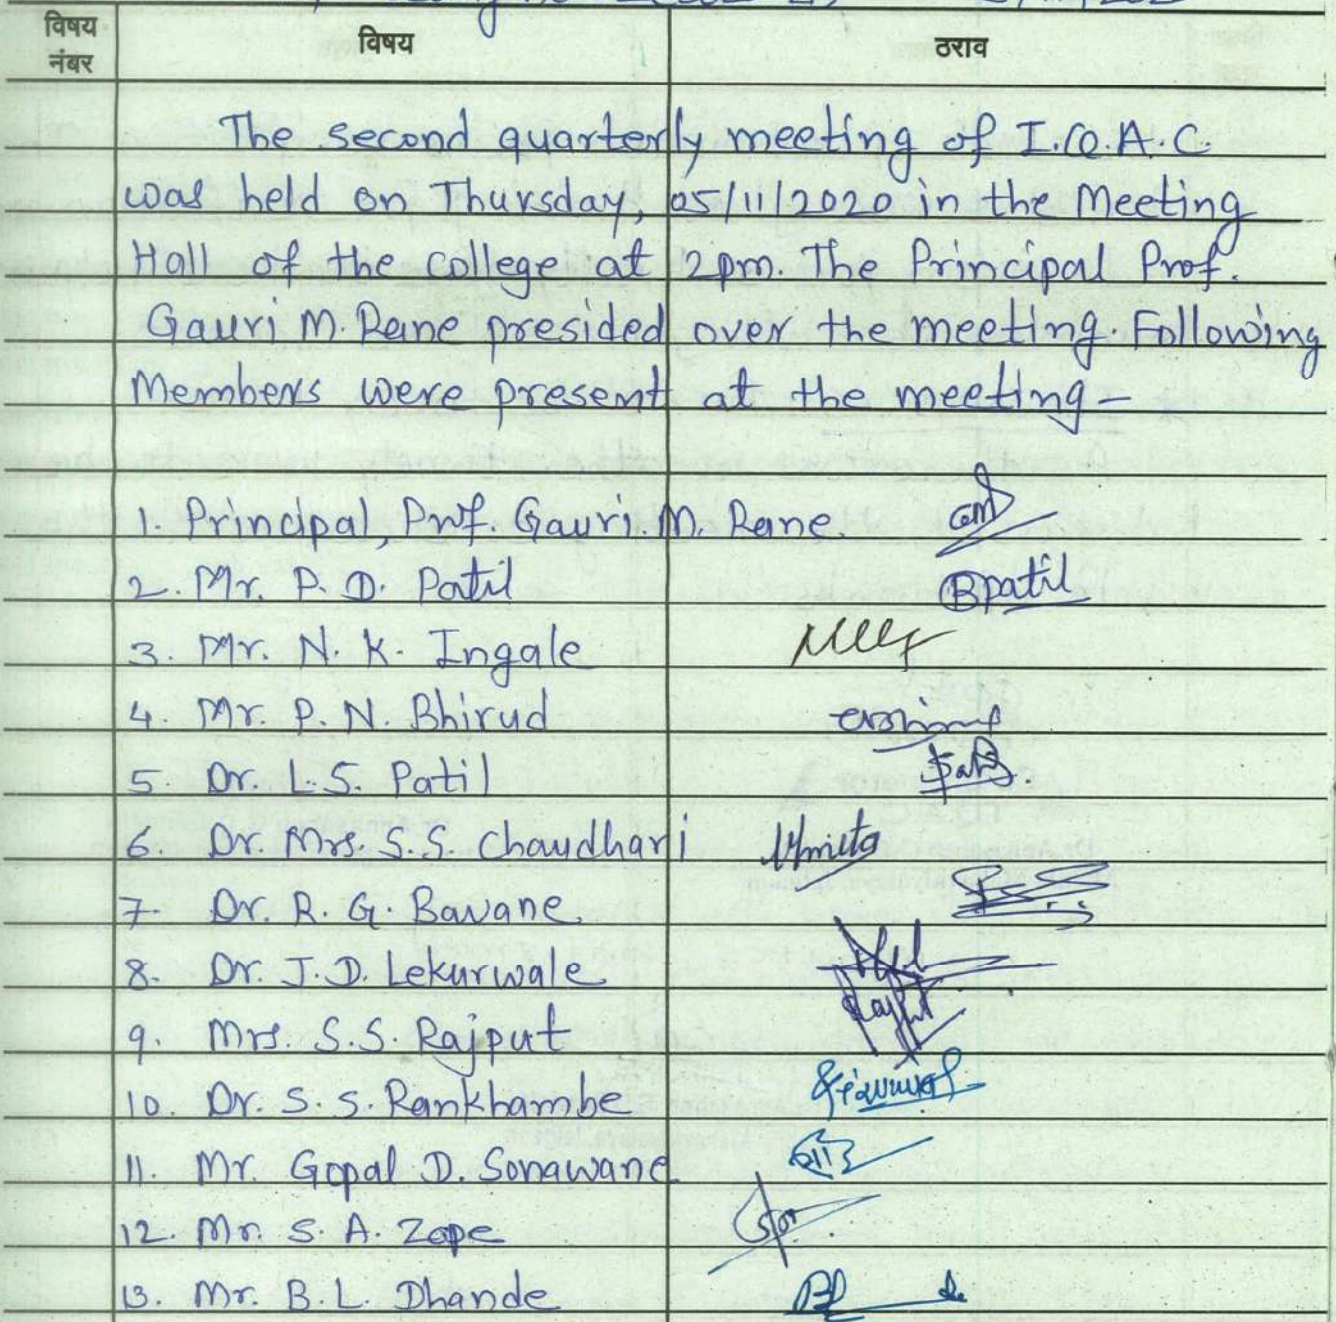 विषय नंबर विषय ठराव
The second quarterly meeting of I.Q.A.C.
was held on Thursday, 05/11/2020 in the Meeting
Hall of the college at 2pm. The Principal Prof.
Gauri M. Rane presided over the meeting. Following
Members were present at the meeting-
1. Principal, Prof. Gauri. M. Rane.
2. Mr. P. D. Patil Bpatil
3. Mr. N. K. Ingale
4. Mr. P. N. Bhirud
5. Dr. L. S. Patil
6 Dr. Mrs. S. S. Chaudhari
7. Dr. R. G. Bavane.
8. Dr. J. D. Lekurwale
9. Mrs. S. S. Rajput
10. Dr. S. S. Rankhambe
11. Mr. Gopal D. Sonawane
12. Mr. S. A. Zope
13. Mr. B. L. Dhande